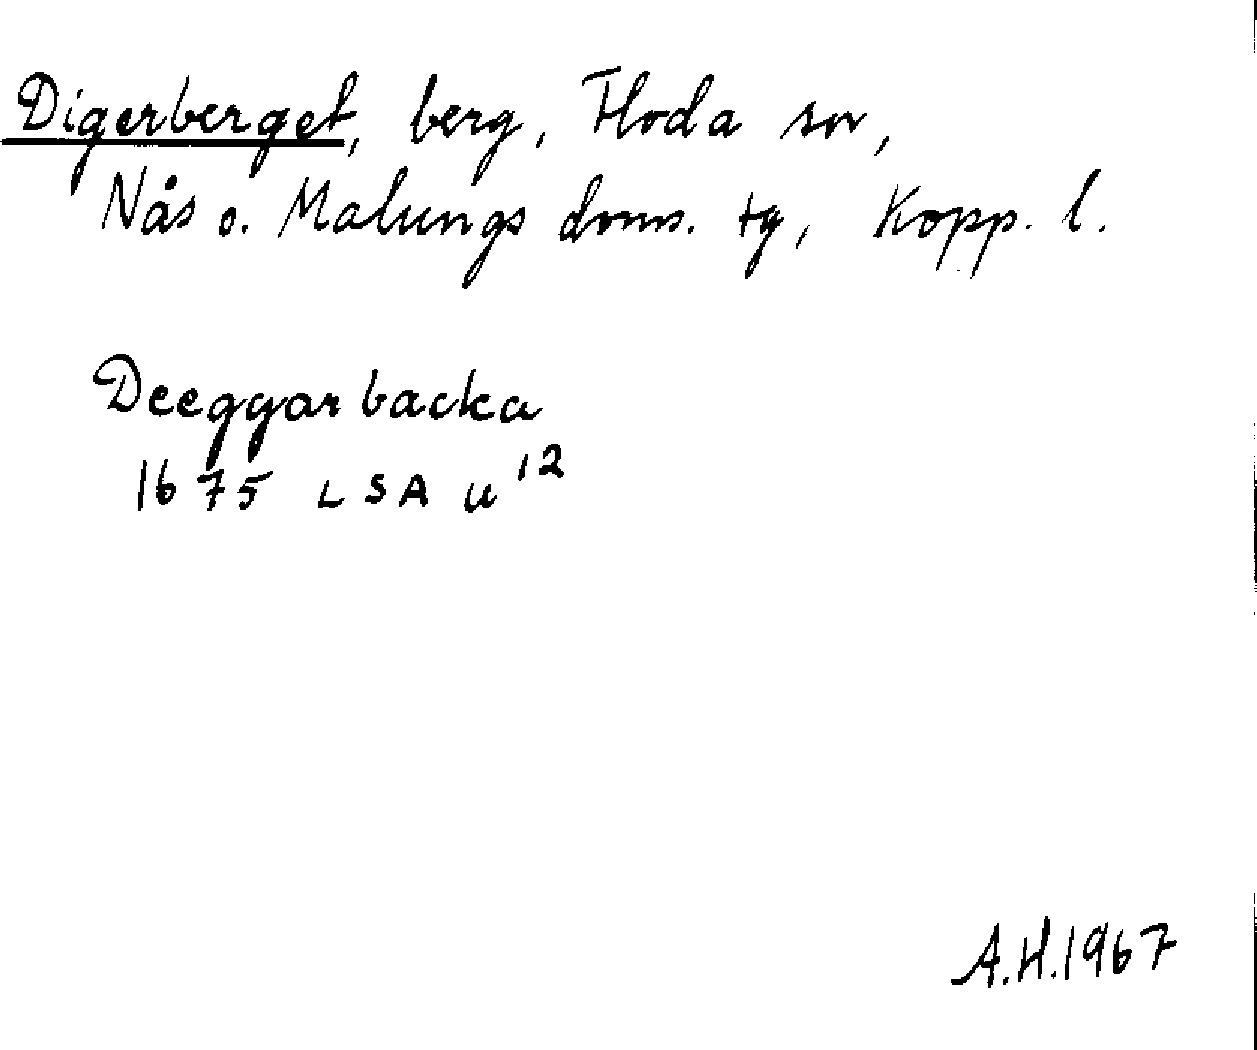 Digerberget, berg, Floda sn,
Nås o. Malungs doms. tg, Kopp. l.
Deeggar backa
1675 LSA u 12
A.H. 1967